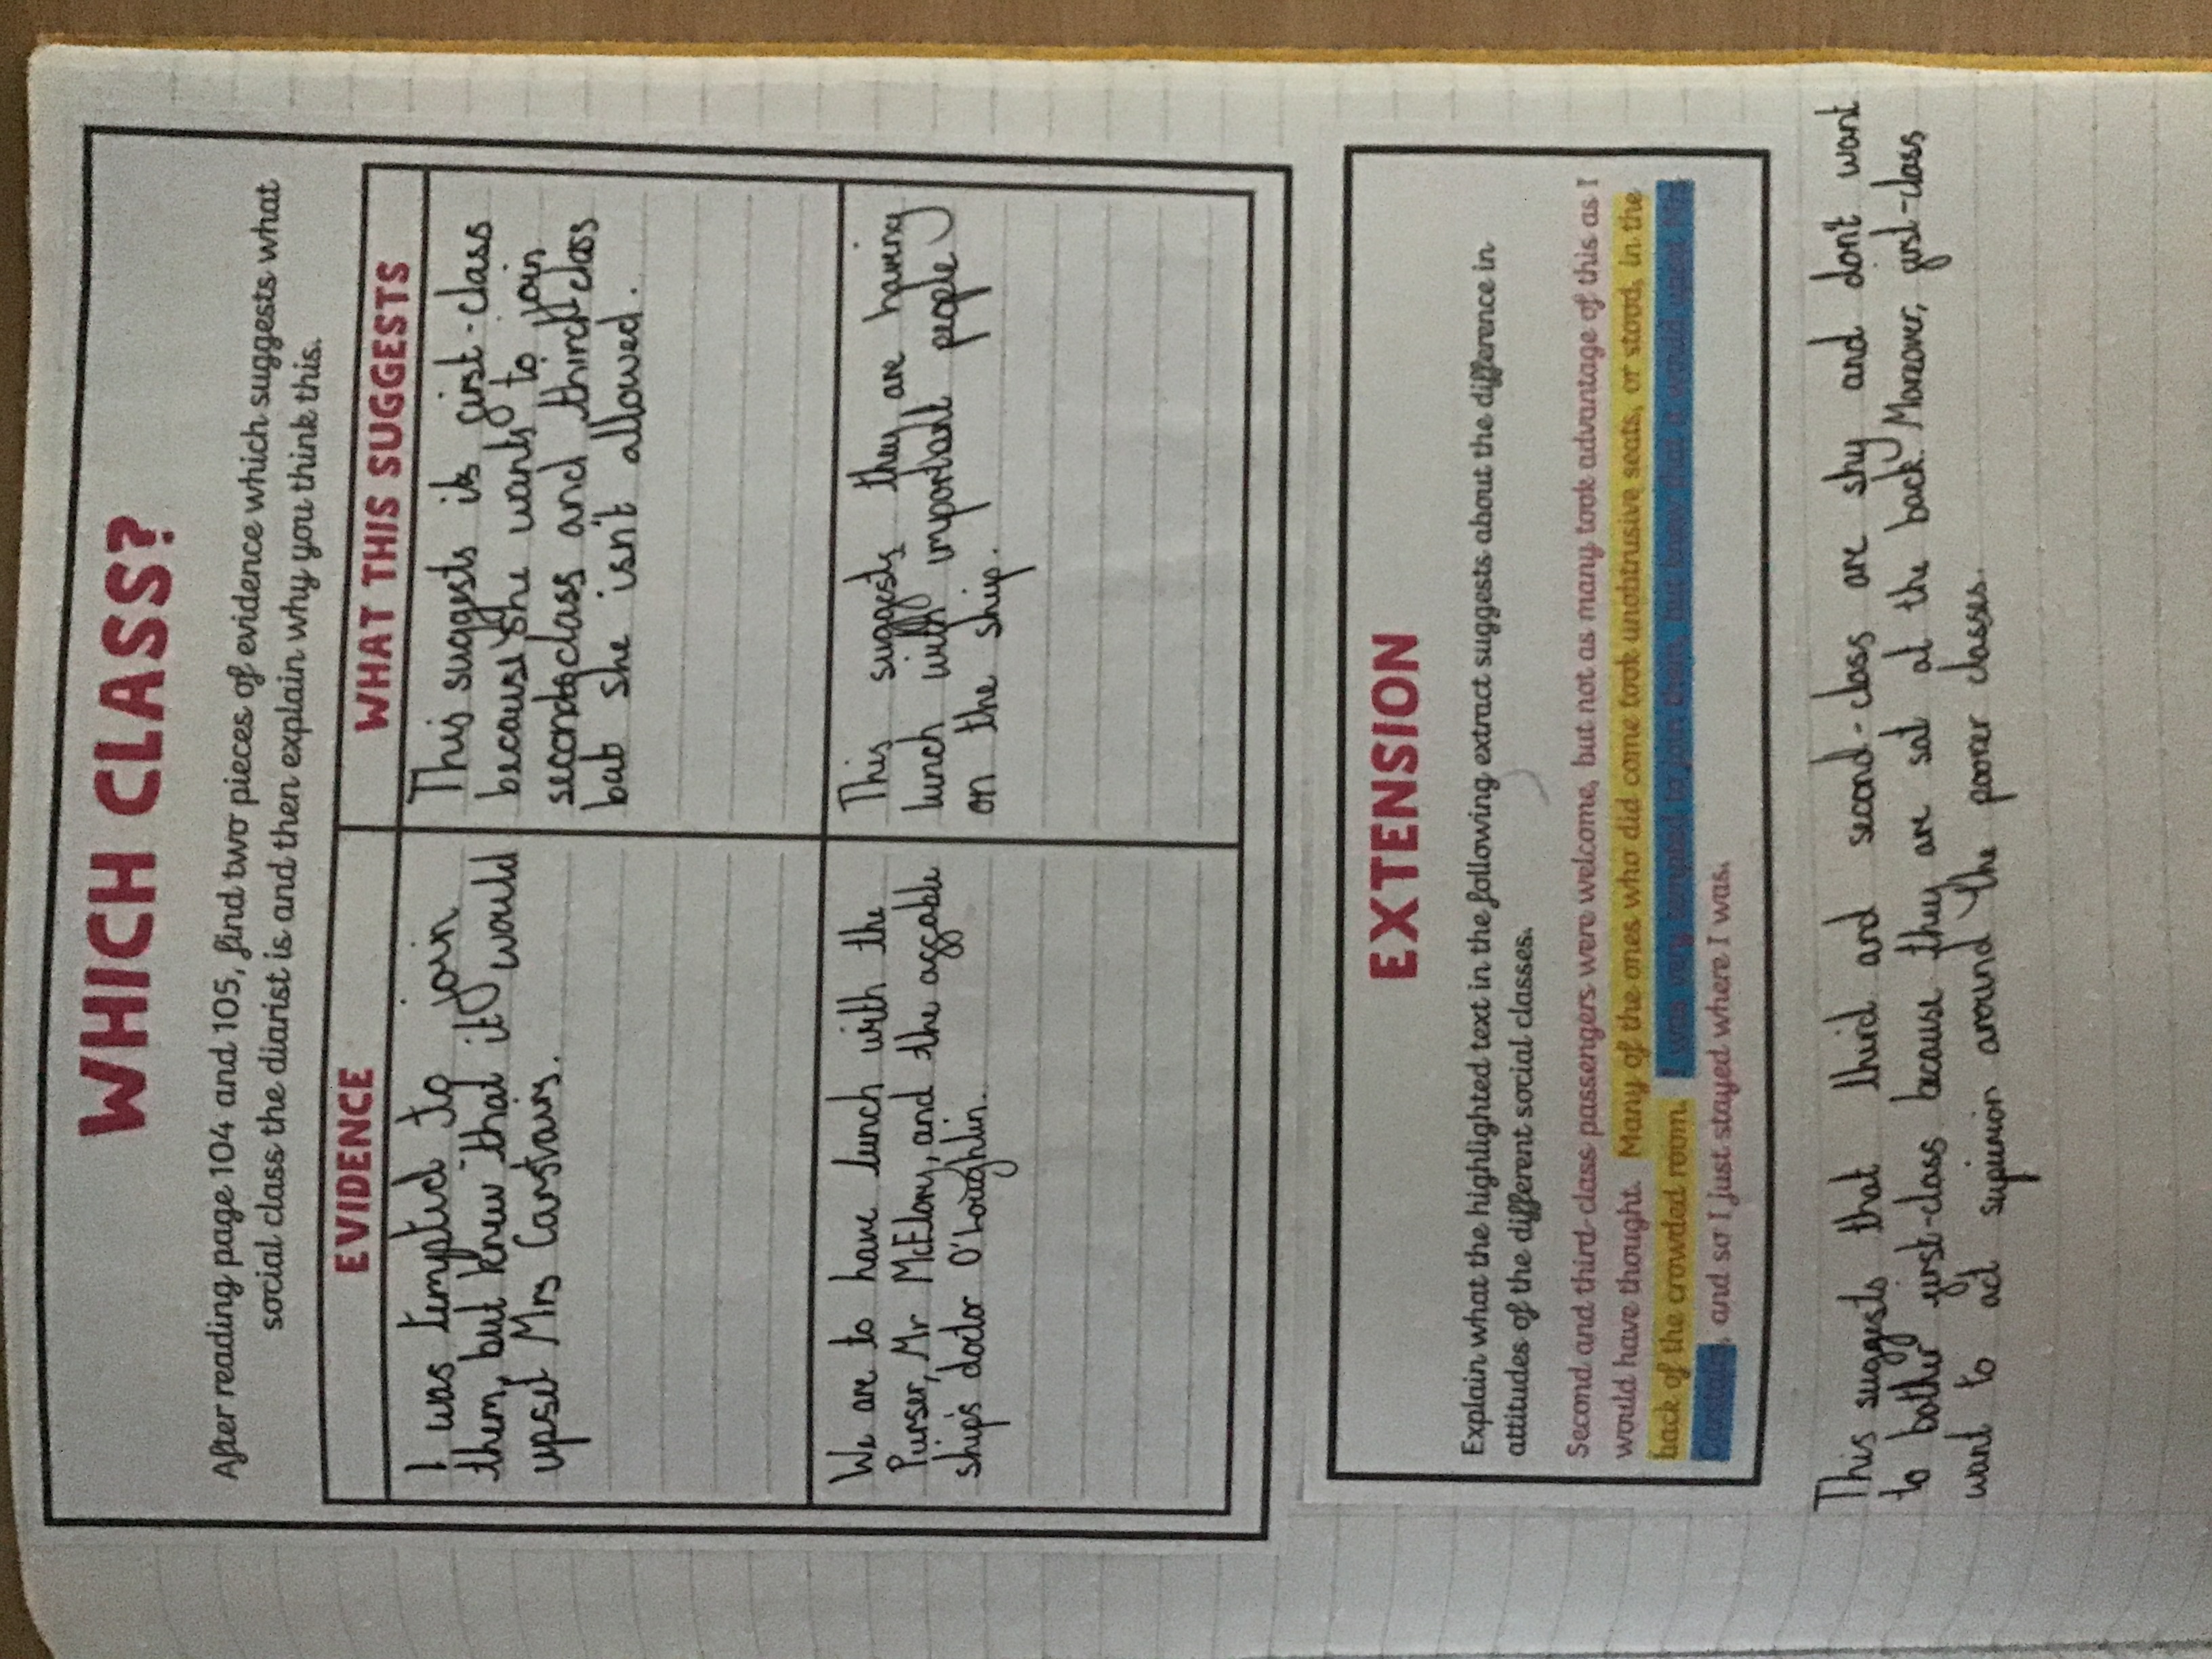 WHICH CLASS?
After reading page 104 and 105, find two pieces of evidence which suggests what
social class the diarist is and then explain why you think this.
EVIDENCE
WHAT THIS SUGGESTS
I was tempted to join
them, but knew that it would
upset Mrs Carstairs.
This suggests its first-class
because she wants to join
second class and third class
but she isn't allowed.
We are to have lunch with the
Purser, Mr McElory, and the affable
ships doctor O'Loughlin.
This suggests they are having
lunch with important people
on the ship.
EXTENSION
Explain what the highlighted text in the following extract suggests about the difference in
attitudes of the different social classes.
Second and third-class passengers were welcome, but not as many took advantage of this as I
would have thought. Many of the ones who did come took unobtrusive seats, or stood, in the
back of the crowded room. I was very tempted to join them, but knew that it would upset Mrs
Carstairs, and so I just stayed where I was.
This suggests that third and second-class are shy and don't want
to bother first-class because they are sat at the back. Moreover, first-class
want to act superior around the poorer classes.